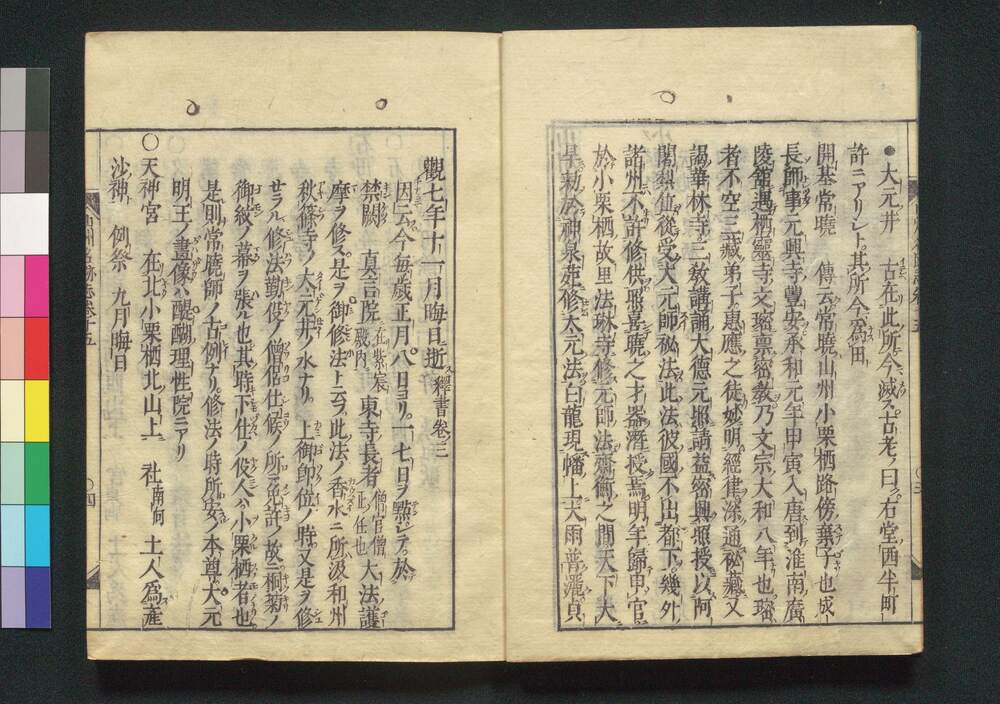 ●大元井　古在此所今滅ス古老ノ曰ク右堂西半町
許ニアリシト其所今爲田
開基常曉　傳云常曉山州小栗栖路傍棄子也成
長師事元興寺豐安承和元年甲寅入唐到淮南廣
陵館遇栖靈寺文璨禀密教乃文宗大和八年也璨
者不空三藏弟子惠應之徒妙明經律深通祕藏又
謁華林寺三教講誦大德元照請益密與照授以阿
闍梨位從受大元師祕法此法彼國不出都下幾外
諸州不許修供照喜曉之才器潛授焉明年歸申官
於小栗栖故里法琳寺修元師法齋衡之間天下大
旱勅於神泉苑修太元法白龍現幡上大雨普灑貞
觀七年十一月晦日逝釋書卷三
因云今毎歳正月八日ヨリ一七日ヲ點シテ於
禁闕　眞言院在紫宸殿内　東寺長者僧官僧正任也大法護
摩ヲ修ス是ヲ御修法ト云フ此法ノ香水ニ所汲和州
秋篠寺ノ大元井ノ水ナリ　上御即位ノ時又是ヲ修
セラル修法勤役ノ僧侶仕候ノ所ニ免許ノ故ニ桐菊ノ
御紋ノ幕ヲ張ル也其時下仕ノ役人ハ小栗栖者也
是則常曉師ノ古例ナリ修法ノ時所安ノ本尊大元
明王ノ畫像ハ醍醐理性院ニアリ
○天神宮　在北小栗栖北山上　社南向　土人爲產
沙神　例祭　九月晦日